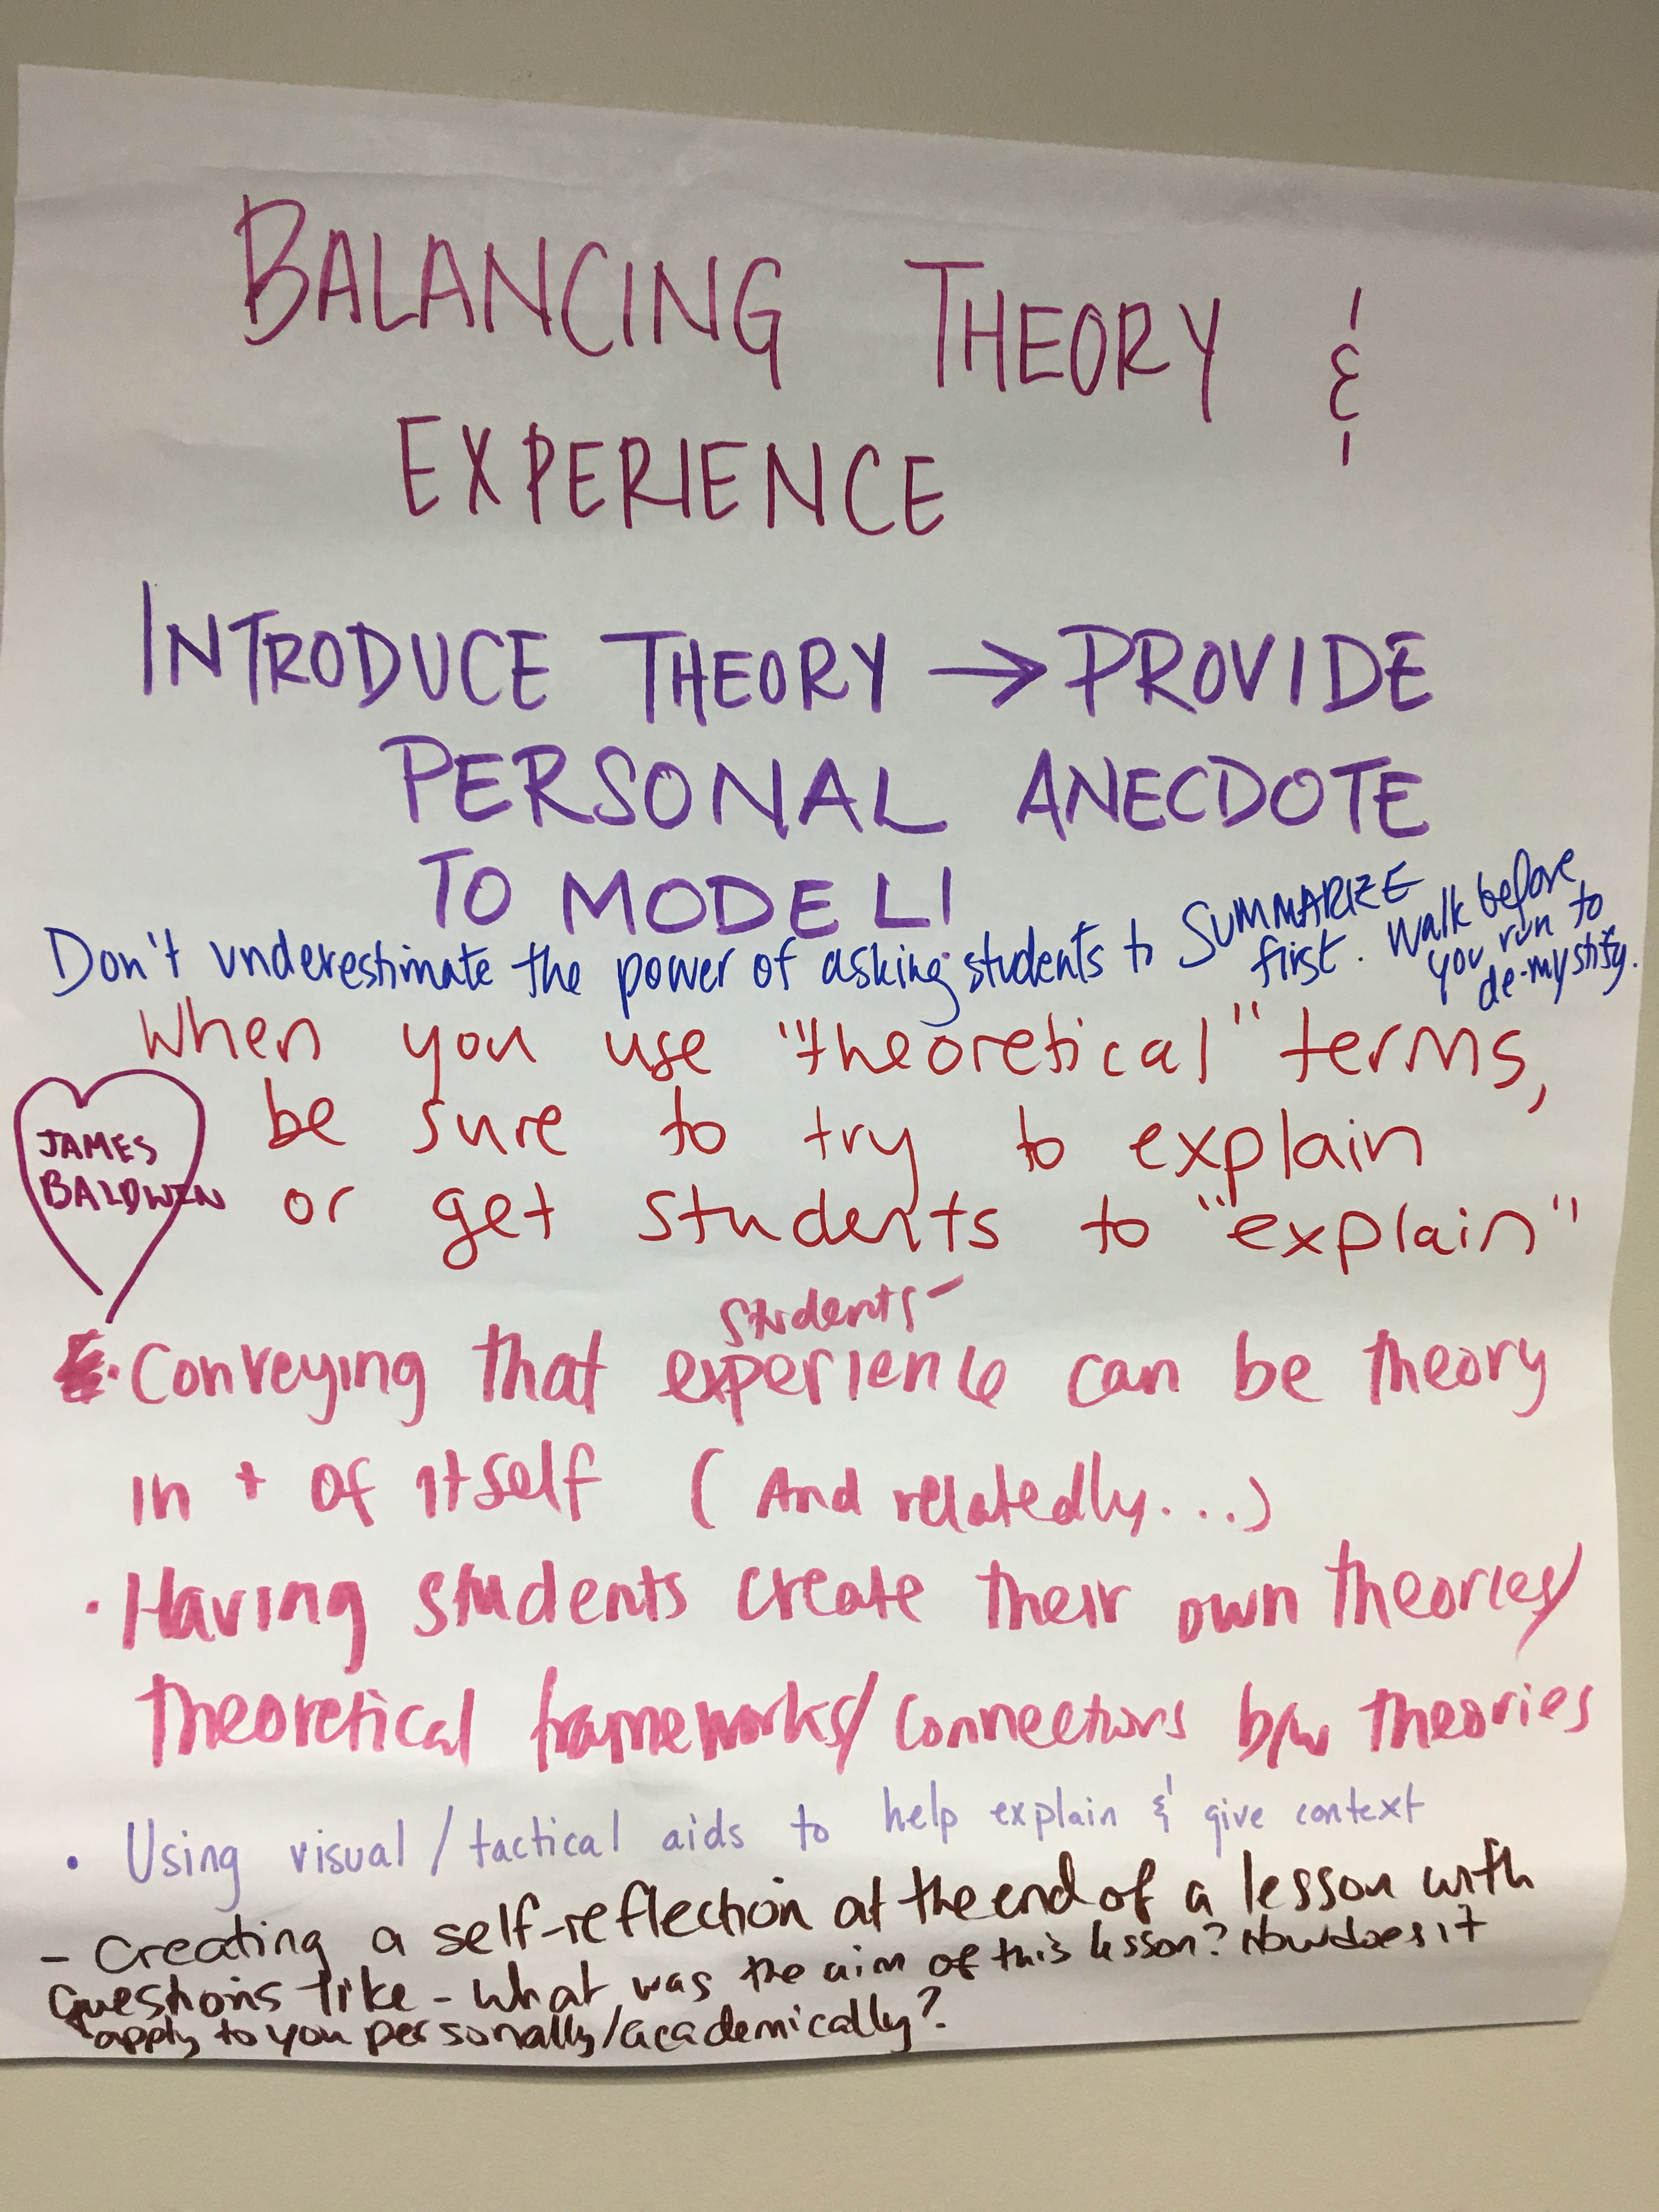 BALANCING THEORY &
EXPERIENCE
INTRODUCE THEORY → PROVIDE
PERSONAL ANECDOTE
TO MODEL!
Don't underestimate the power of asking students to SUMMARIZE
first. Walk before
you run to
de-mystify.
When you use "theoretical" terms,
be sure to try to explain
or get students to "explain"
JAMES
BALDWIN
students'
· Conveying that experience can be theory
in + of itself (And relatedly...)
· Having students create their own theories/
theoretical frameworks/connections b/w theories
· Using visual/tactical aids to help explain & give context
- Creating a self-reflection at the end of a lesson with
questions like - What was the aim of this lesson? How does it
apply to you personally/academically?